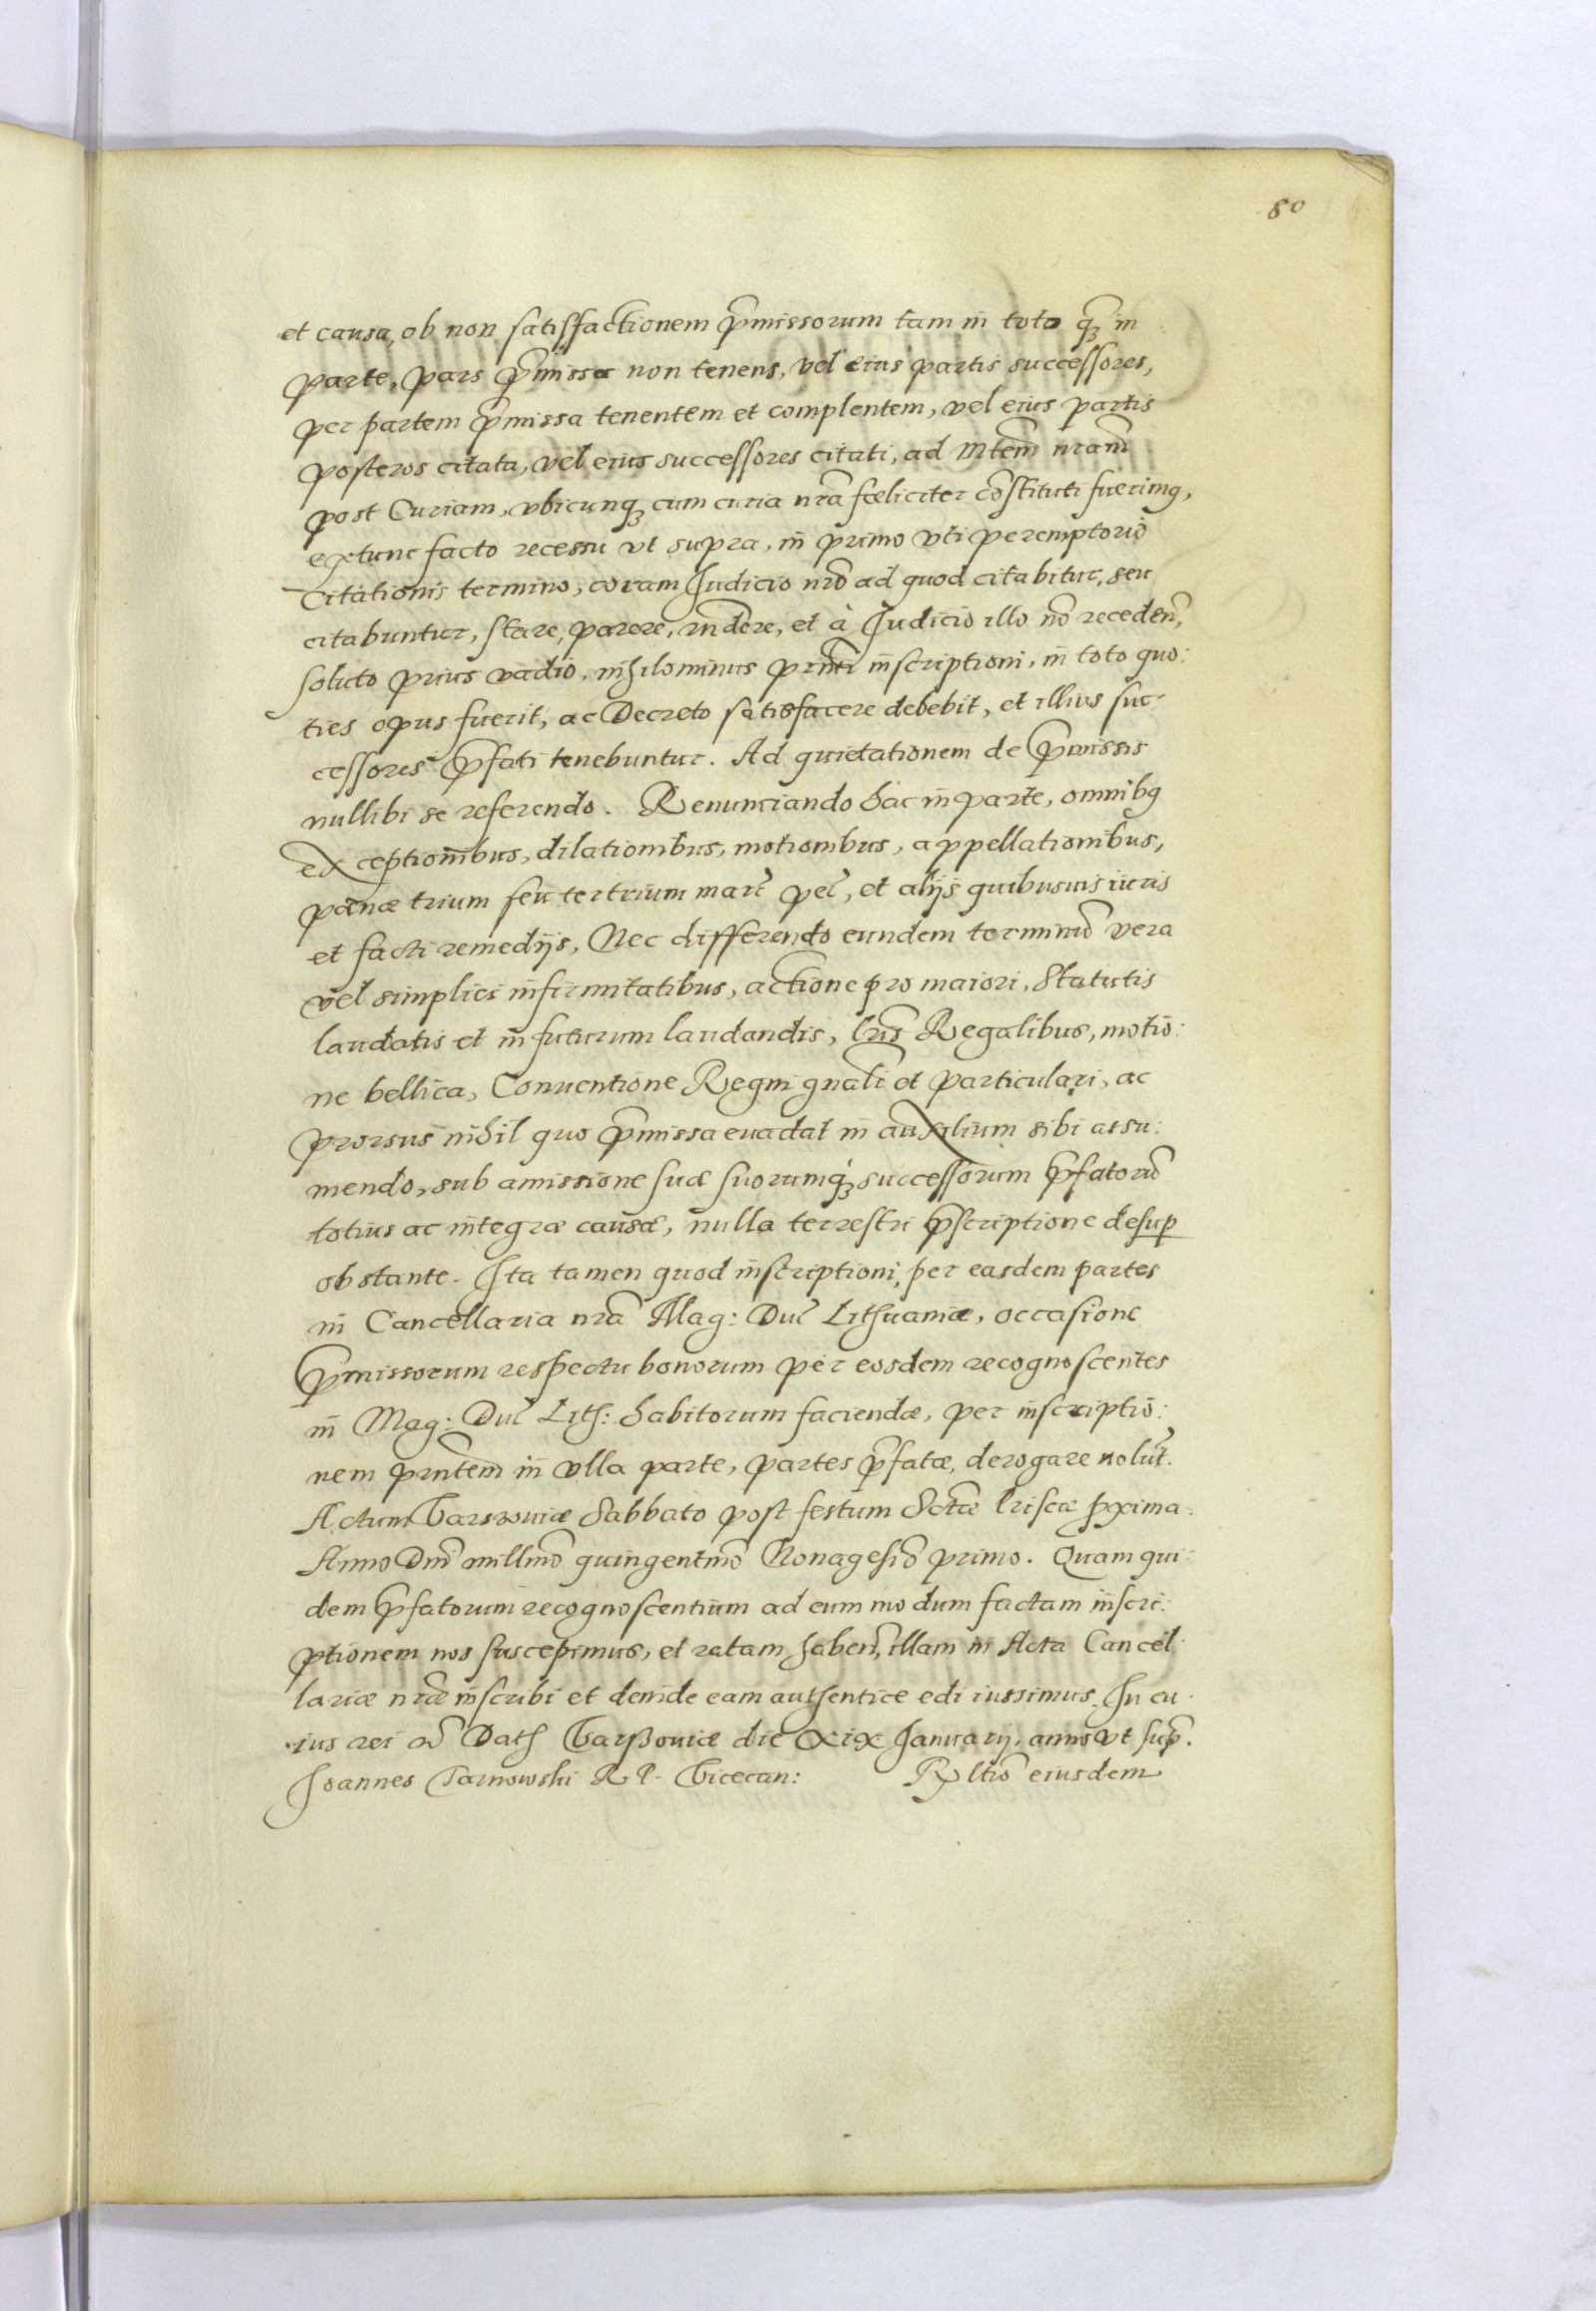 80
et causa, ob non satisfactionem p̃missorum tam in toto q̃ꝫ in
parte, pars p̃missa non tenens, vel eius partis successores,
per partem p̃missa tenentem et complentem, vel eius partis
posteros citata, vel eius successores citati, ad Mtem̃ nram̃
post Curiam, vbicunqꝫ cum curia nrã fœliciter cõstituti fuerimꝰ,
extunc facto recessu vt supra, in primo vti peremptorio
Citationis termino, coram Judicio nrõ ad quod citabitur, seu
citabuntur, stare, parere, rñdere, et à Judicio illo nõ recedeñ,
soluto prius vadio, nihilominus prñti inscriptioni, in toto quo:
ties opus fuerit, ac Decreto satisfacere debebit, et illius suc-
cessores p̃fati tenebuntur. Ad quietationem de p̃missis
nullibi se referendo. Renunciando hac in parte, omnibꝰ
exceptionibus, dilationibus, motionibus, appellationibus,
pœnæ trium seu ter trium marc̃ pec̃, et alijs quibusuis iuris
et facti remedijs, Nec differendo eundem terminũ vera
vel simplici infirmitatibus, actione pro maiori, Statutis
laudatis et in futurum laudandis, lrĩs Regalibus, motio:
ne bellica, Conuentione Regni gnalĩ et particulari, ac
prorsus nihil quo p̃missa euadat in auxilium sibi assu:
mendo, sub amissione suæ suorumqꝫ successorum p̃fatorũ
totius ac integræ causæ, nulla terrestri p̃scriptione desup̱
obstante. Ita tamen quod inscriptioni, per easdem partes
in Cancellaria nrã Mag: Duc̃ Lithuaniæ, occasione
p̃missorum respectu bonorum per eosdem recognoscentes
in Mag: Duc̃ Lith: habitorum faciendæ, per inscriptio:
nem prñtem in vlla parte, partes p̃fatæ, derogare nolut̃.
Actum Varsouiæ Sabbato post festum Sctæ̃ Priscæ pxima.
Anno Dnĩ millmõ quingentmõ Nonagesiõ primo. Quam qui
dem p̃fatorum recognoscentium ad eum modum factam inscri:
ptionem nos suscepimus, et ratam habeñ, illam in Acta Cancel
lariæ nræ̃ inscribi et deinde eam authentice edi iussimus. In cu
ius rei Dath Varßouiæ die xix Januarij, anno vt sup̃.
Joannes Tarnowski R. P. Vicecan: Rltio eiusdem